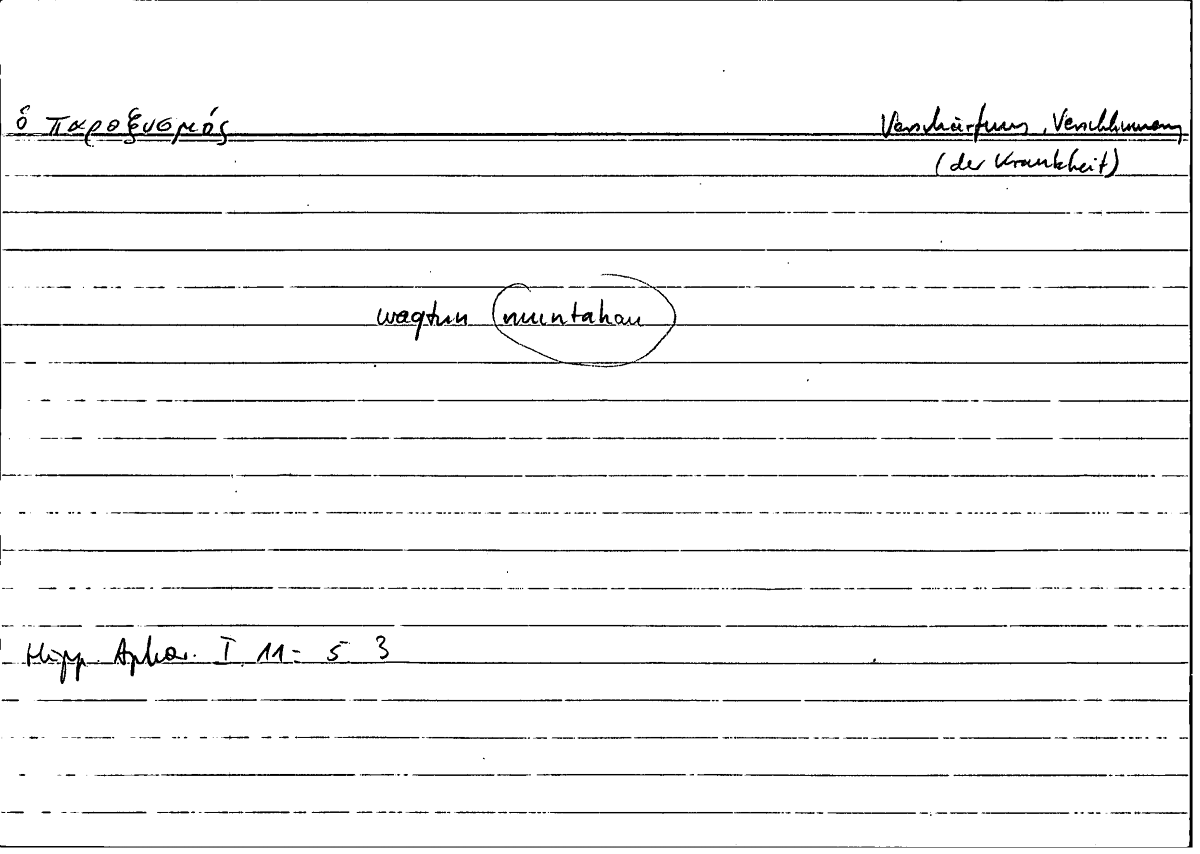 ὁ παροξυσμός Verschärfung, Verschlimmerung
(der Krankheit)
waqtun muntahan
Hipp. Aphor. I 11 = 5 3